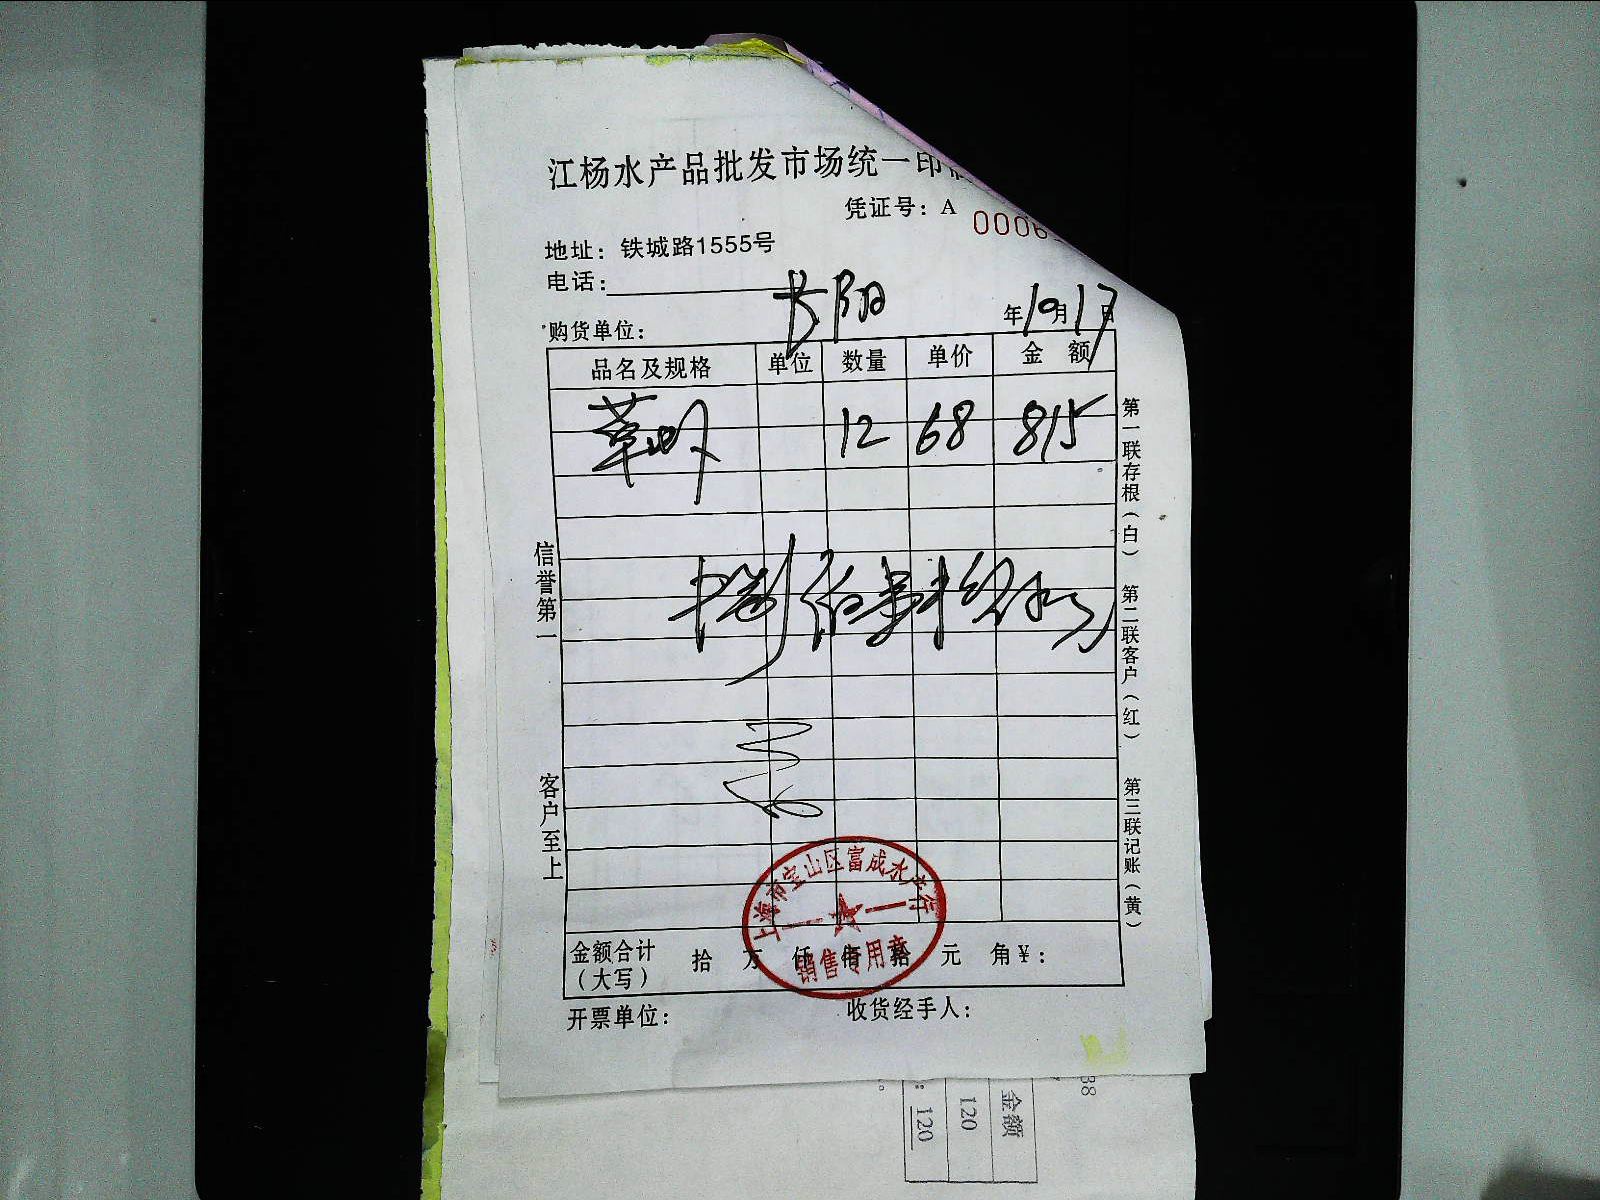 江杨水产品批发市场统一印
凭证号：A 0006
地址：铁城路1555号
电话：
年10月17日
购货单位：
品名及规格 单位 数量 单价 金额
草虾 12 68 815
捌佰
信誉第一
客户至上
第一联存根（白）
第二联客户（红）
第三联记账（黄）
上海市宝山区富成水产行
销售专用章
金额合计（大写） 拾 万 仟 佰 拾 元 角 ¥：
开票单位： 收货经手人：
38
金额
120
120